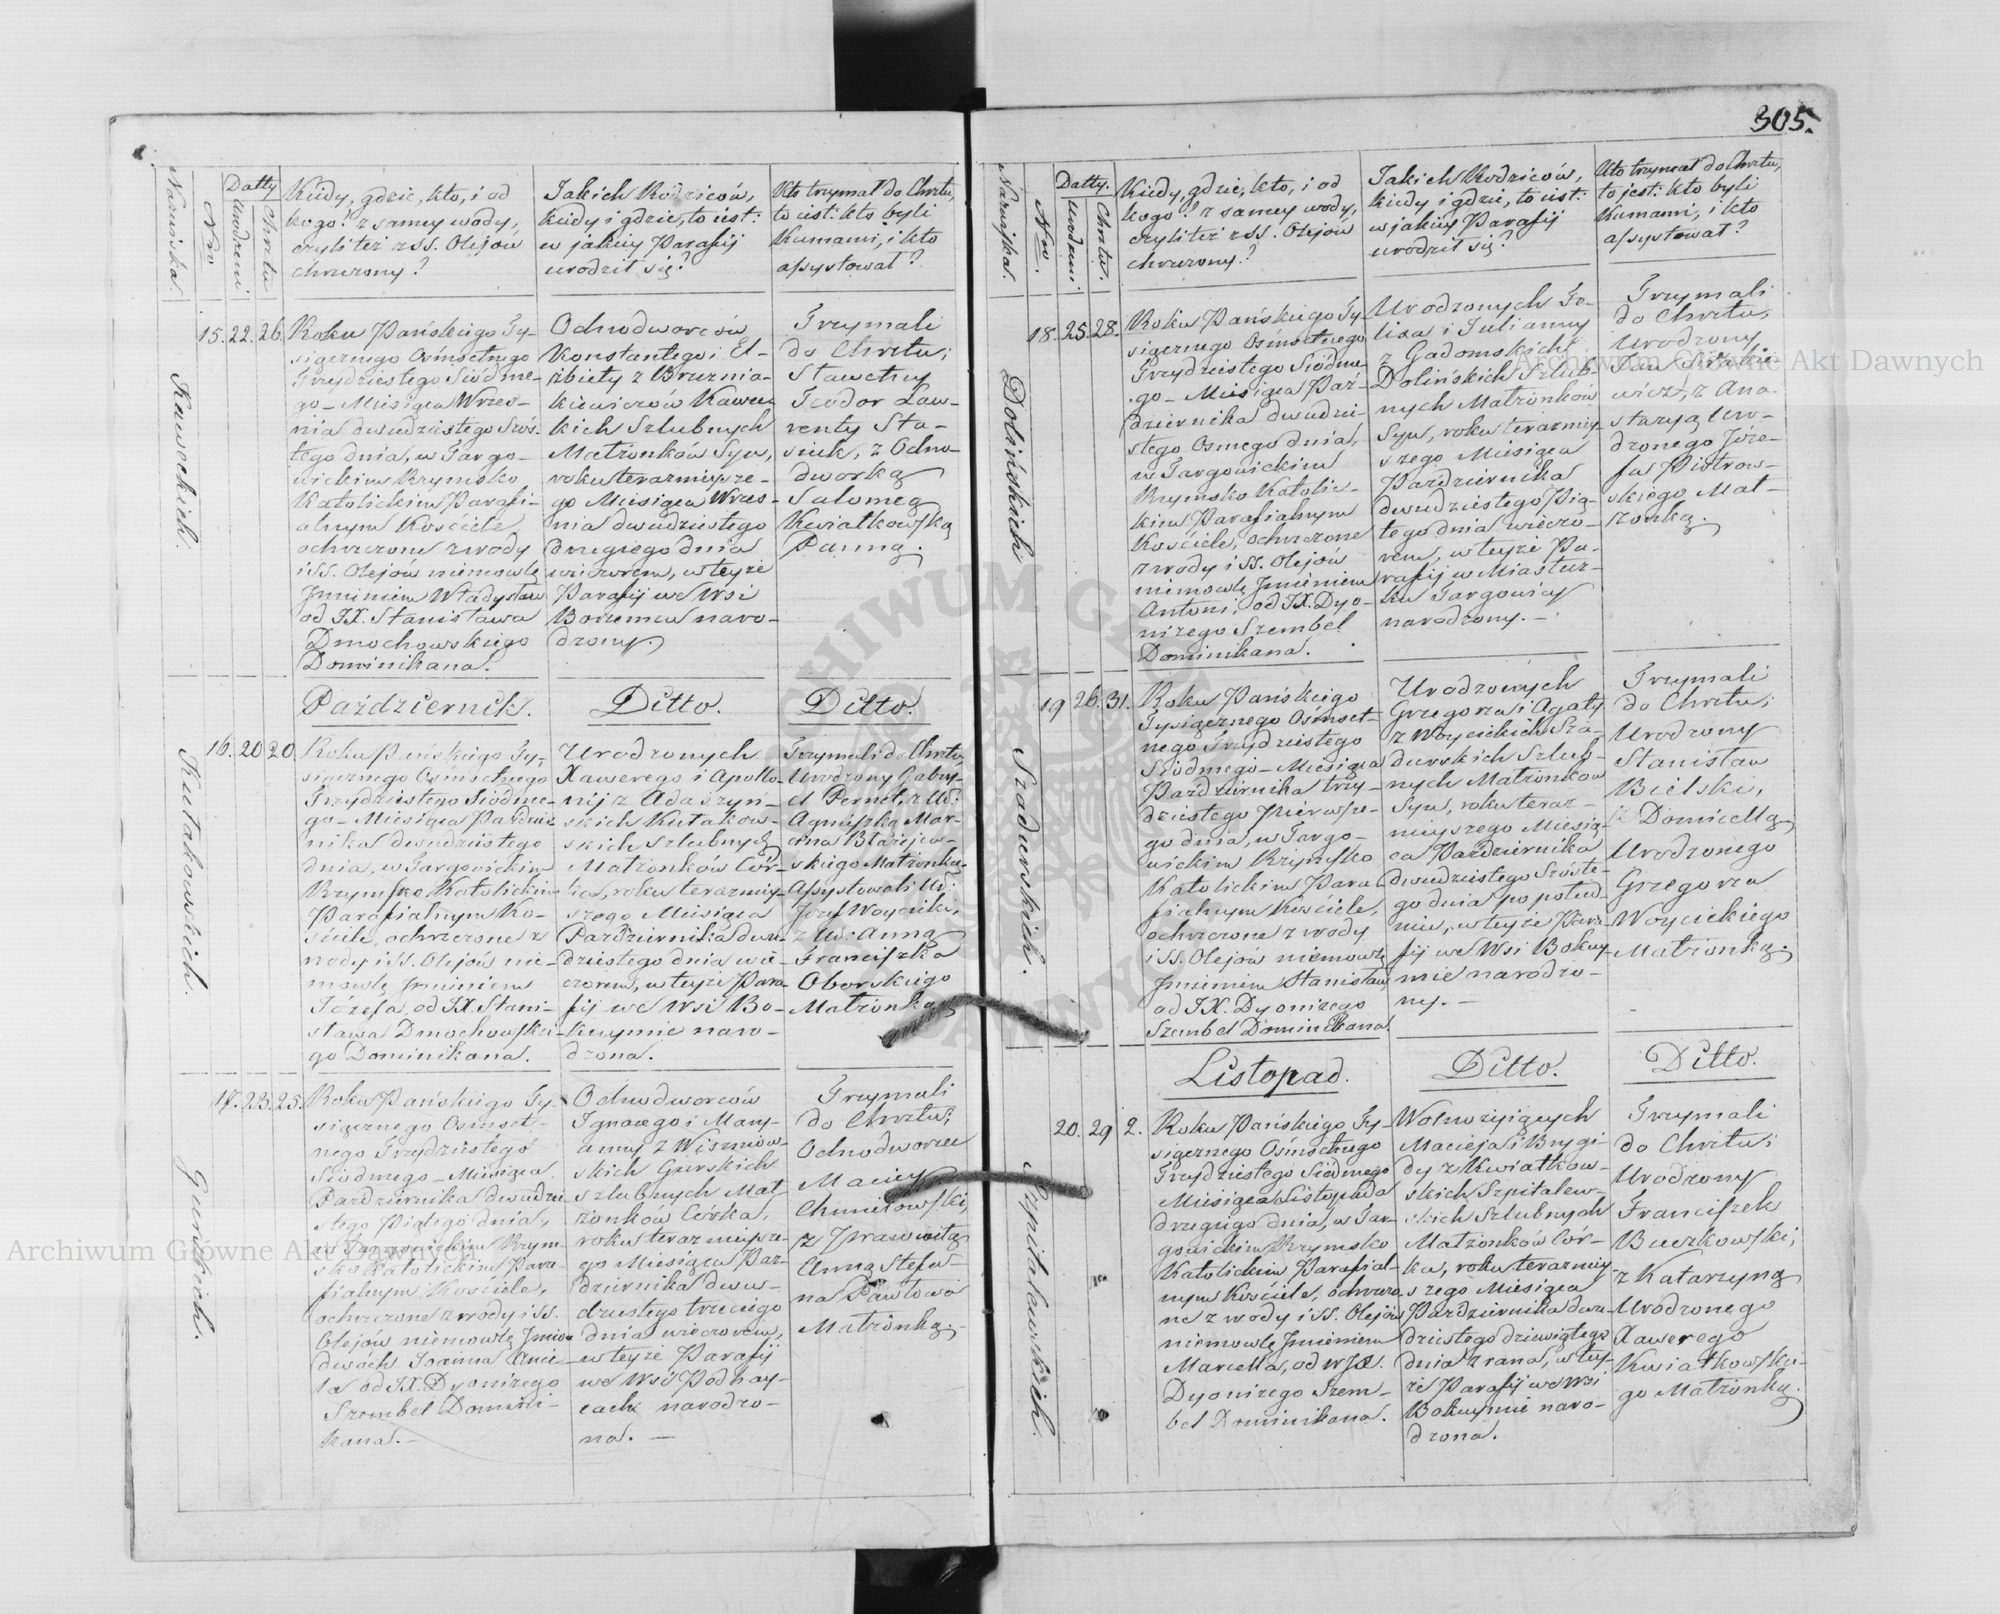 305.
Nazwiska.
Nro
Datty
Urodzeni
Chrztu
Kiedy, gdzie, kto, i od
kogo? z samey wody,
czyli też z SS. Olejów
chrzczony?
Jakich Rodziców,
kiedy i gdzie, to iest:
w jakiey Parafij
urodził się?
Kto trzymał do Chrztu,
to iest: kto byli
Kumami, i kto
assystował?
Kaweckich.
15. 22. 26.
Roku Pańskiego Ty-
siącznego Ośmsetnego
Trzydziestego Siódme-
go – Miesiąca Wrześ-
nia dwudziestego Szós-
tego dnia, w Targo-
wickim Rzymsko
Katolickim Parafi-
alnym Kościele,
ochrzczone z wody
i SS. Olejów niemowlę
Jmieniem Władysław
od JX. Stanisława
Dmochowskiego
Dominikana.
Odnodworców
Konstantego i El-
żbiety z Bruznia-
kiewiczów Kawec
kich Szlubnych
Małżonków Syn,
roku teraznieysze-
go Miesiąca Wrześ-
nia dwudziestego
drugiego dnia
wieczorem, w teyże
Parafij we Wsi
Borzemcu naro-
dzony.
Trzymali
do Chrztu;
Sławetny
Teodor Law-
renty Sta-
siuk, z Odno-
dworką
Salomeą
Kwiatkowską
Panną.
Październik.
Ditto.
Ditto.
Kutakowskich.
16. 20 20
Roku Pańskiego Ty-
siącznego Ośmsetnego
Trzydziestego Siódme-
go – Miesiąca Paździer
nika dwudziestego
dnia, w Targowickim
Rzymsko Katolickim
Parafialnym Ko-
ściele, ochrzczone z
wody i SS. Olejów nie-
mowlę Jmieniem
Józefa, od JX. Stani-
sława Dmochowskie-
go Dominikana.
Urodzonych
Xawerego i Apollo-
nij z Adaszyń-
skich Kutakow-
skich Szlubnych
Małżonków Cór-
ka, roku teraźniey-
szego Miesiąca
Października dwu-
dziestego dnia wie-
czorem, w teyże Para-
fij we Wsi Bo-
kuymie naro-
dzona.
Trzymali do Chrztu,
Urodzony Gabry-
el Pernet, z Ur:
Agnieszką Mar-
cina Błażejew-
skiego Małżonką.
Assystowali Ur:
Józef Woycicki,
z Ur: Anną
Franciszka
Oborskiego
Małżonką
Gurskich.
17. 23. 25.
Roku Pańskiego Ty-
siącznego Ośmset-
nego Trzydziestego
Siódmego – Miesiąca
Października dwudzie
stego Piątego dnia,
w Targowickim Rzym-
sko Katolickim Para-
fialnym Kościele,
ochrzczone z wody i SS.
Olejów niemowlę Jmion
dwóch Joanna Anie-
la od JX. Dyonizego
Szembel Domini-
kana. –
Odnodworców
Ignacego i Mary-
anny z Wiszniow-
skich Gurskich
szlubnych Mał-
żonków Córka,
roku teraz nieysze-
go Miesiąca Paź-
dziernika dwu-
dziestego trzeciego
dnia wieczorem,
w teyże Parafij
we Wsi Podhay-
cach narodzo-
na. –
Trzymali
do Chrztu;
Odnodworzec
Maciey
Chmielowski,
z Prawowitą
Anną Stefa-
na Pawłowa
Małżonką. –
Nazwiska.
Nro.
Datty.
Urodzeni
Chrztu.
Kiedy, gdzie, kto, i od
kogo? z samey wody,
czyli też z SS. Olejów
chrzczony?
Jakich Rodziców,
kiedy i gdzie, to iest:
w jakiey Parafij
urodził się?
Kto trzymał do Chrztu,
to jest: kto byli
Kumami, i kto
assystował?
Dolińskich
18. 25 28.
Roku Pańskiego Ty-
siącznego Ośmsetnego
Trzydziestego Siódme
go – Miesiąca Paź-
dziernika dwudzie-
stego Osmego dnia,
w Targowickim
Rzymsko Katolic-
kim Parafialnym
Kościele, ochrzczone
z wody i SS. Olejów
niemowlę Jmieniem
Antoni, od JX. Dyo-
nizego Szembel
Dominikana.
Urodzonych Fe-
lixa i Julianny
z Gadomskich
Dolińskich Szlub-
nych Małżonków
Syn, roku teraźniey
szego Miesiąca
Października
dwudziestego Pią-
tego dnia wieczo-
rem, w teyże Pa-
rafij w Miastecz-
ku Targowicy
narodzony. –
Trzymali
do Chrztu,
Urodzony
Jan
wicz, z Ana-
stazyą Uro-
dzonego Józe-
fa Piotrow-
skiego Mał-
żonką.
Szadurskich.
19 26. 31.
Roku Pańskiego
Tysiącznego Ośmset-
nego Trzydziestego
Siódmego – Miesiąca
Października trzy-
dziestego Pierwsze-
go dnia, w Targo-
wickim Rzymsko
Katolickim Para-
fialnym Kościele,
ochrzczone z wody
i SS. Olejów niemowlę
Jmieniem Stanisław
od JX. Dyonizego
Szembel Dominikana.
Urodzonych
Grzegorza i Agaty
z Woycickich Sza-
durskich Szlub-
nych Małżonków
Syn, roku teraz-
nieyszego Miesią-
ca Października
dwudziestego Szóste-
go dnia po połud-
niu, w teyże Para-
fij we Wsi Bokuy-
mie narodzo-
ny. –
Trzymali
do Chrztu;
Urodzony
Stanisław
Bielski,
z Domicellą
Urodzonego
Grzegorza
Woycickiego
Małżonką.
Listopad.
Ditto.
Ditto.
Szpitalewskich.
20. 29 2.
Roku Pańskiego Ty-
siącznego Ośmsetnego
Trzydziestego Siódmego
Miesiąca Listopada
drugiego dnia, w Tar-
gowickim Rzymsko
Katolickim Parafial-
nym Kościele, ochrzczo
ne z wody i SS. Olejów
niemowlę Jmieniem
Marcella, od WJX.
Dyonizego Szem-
bel Dominikana.
Wolnożyiących
Macieja i Brygi-
dy z Kwiatkow-
skich Szpitalew-
skich Szlubnych
Małżonków Cór-
ka, roku teraźniey-
szego Miesiąca
Października dwu-
dziestego dziewiątego
dnia z rana, w tey-
że Parafij we Wsi
Bokuymie naro-
dzona.
Trzymali
do Chrztu;
Urodzony
Franciszek
Buczkowski,
z Katarzyną
Urodzonego
Xawerego
Kwiatkowskie-
go Małżonką.
Archiwum Główne Akt Dawnych
Archiwum Główne Akt Dawnych